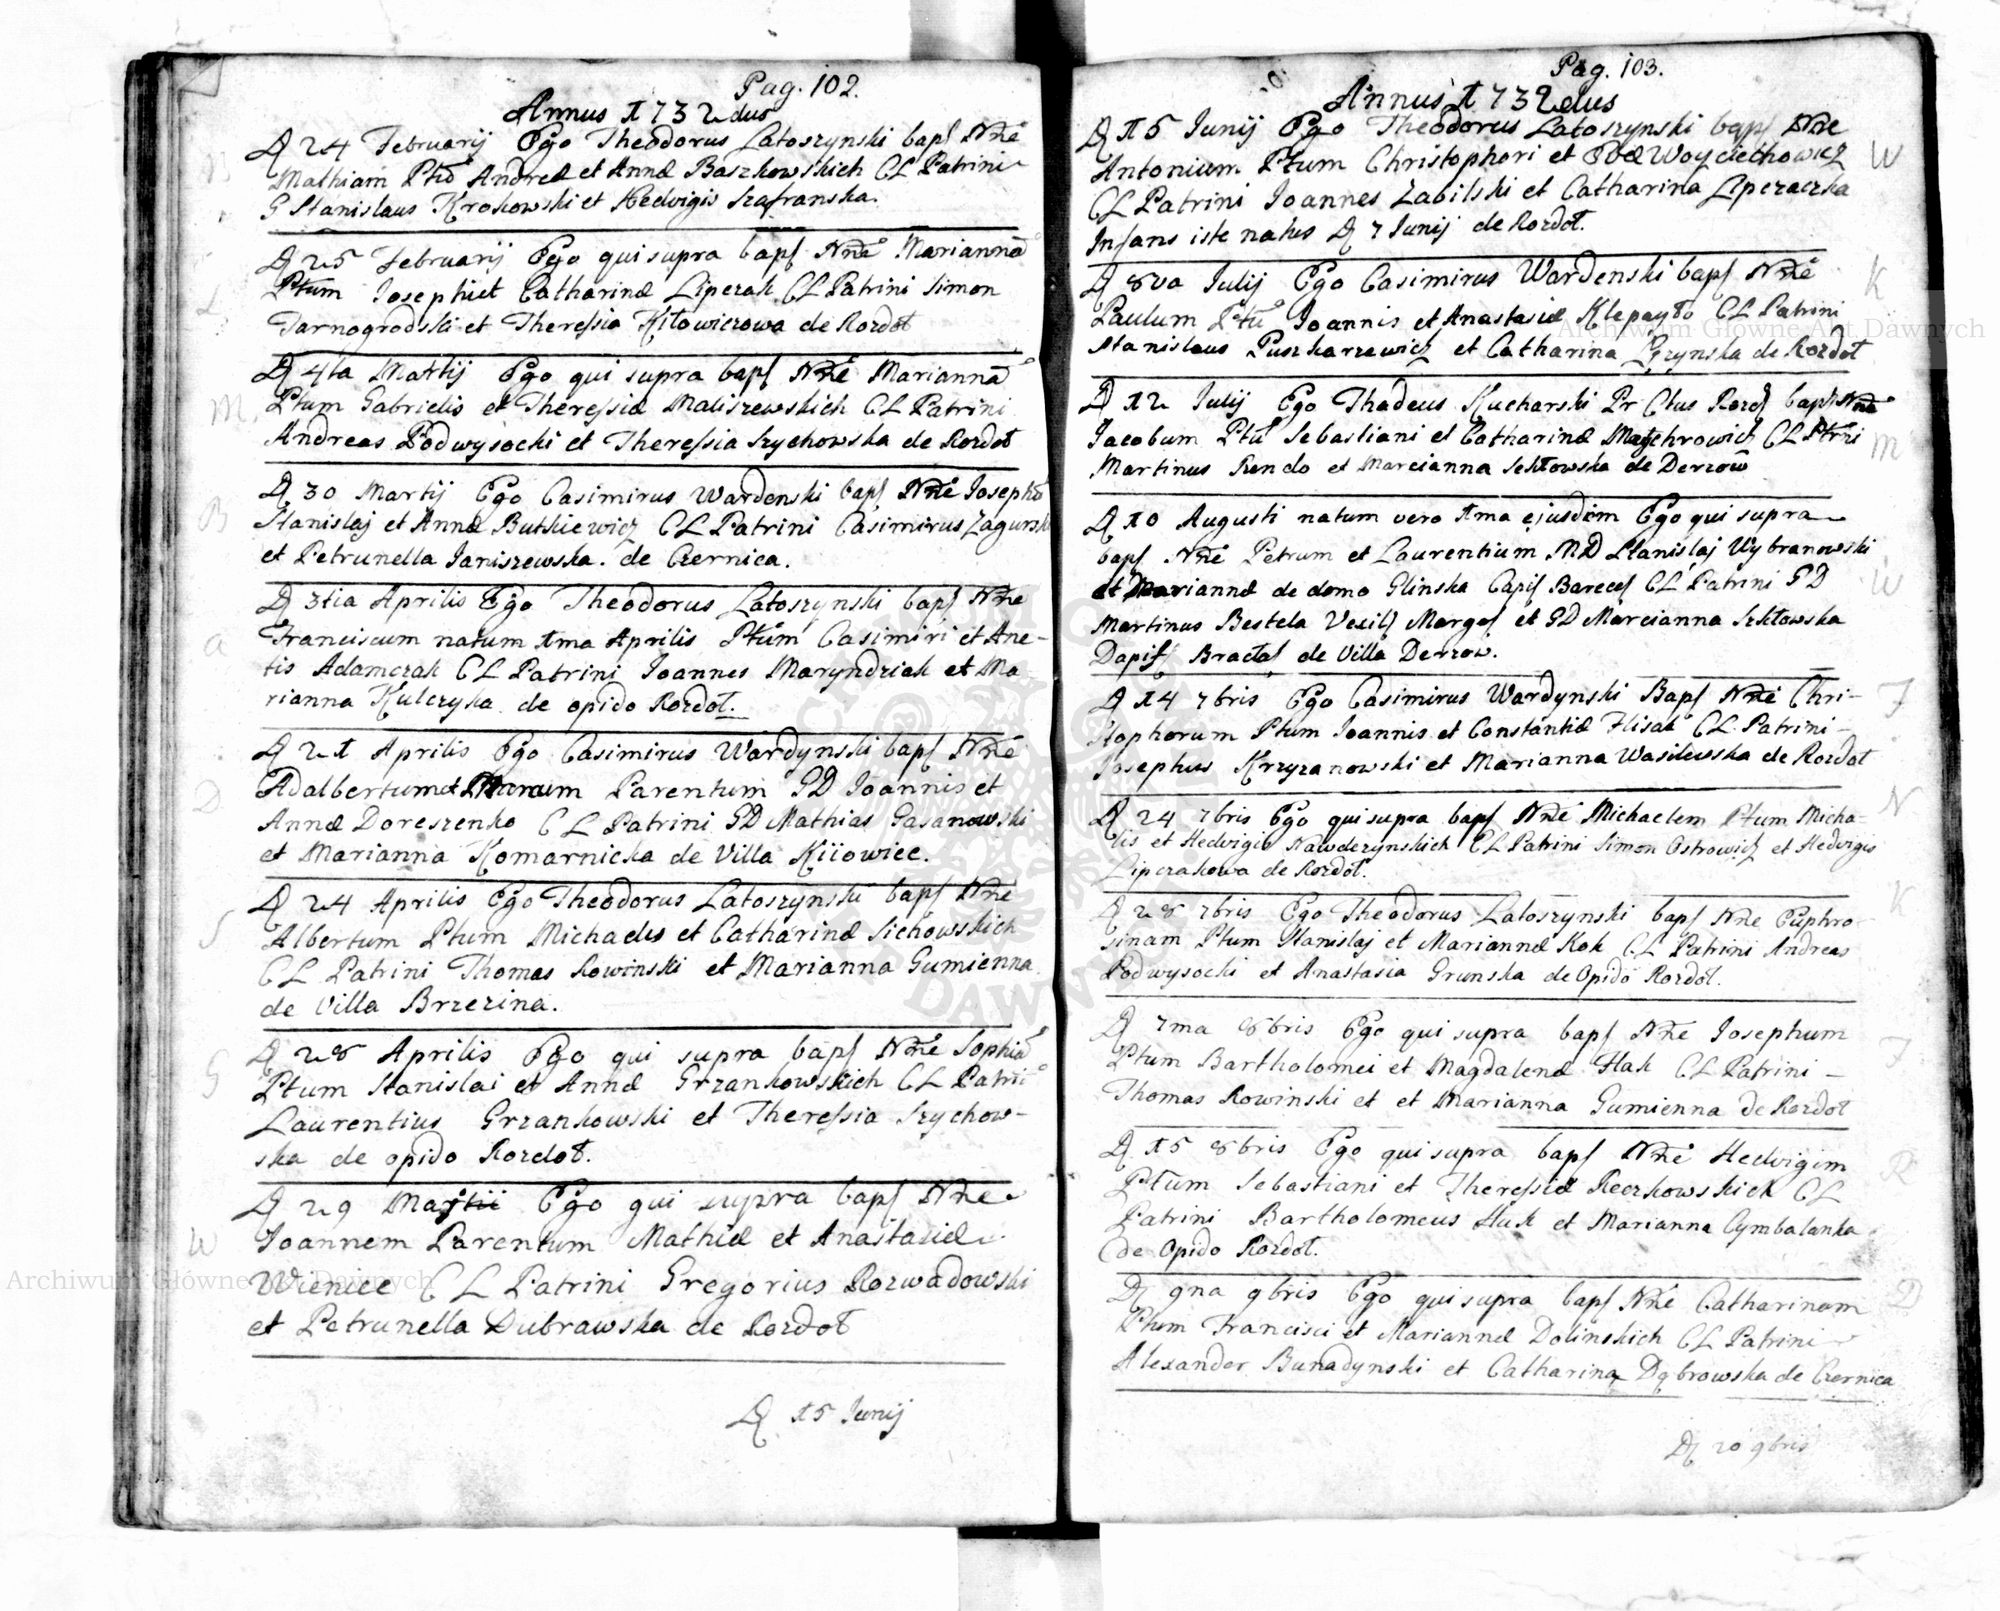 Pag. 102.
Annus 1732dus
D 24 Februarij Ego Theodorus Latoszynski bapt Nne
Mathiam Ptu Andreæ et Annæ Baszkowskich CL Patrini
G Stanislaus Krokowski et Hedvigis Szafranska.
D 25 Februarij Ego qui supra bapt Nne Marianna
Ptum Josephi et Catharinæ Liperak CL Patrini Simon
Tarnogrodski et Theressia Kitowiczowa de Rozdot
D 4ta Martij Ego qui supra bapt Nne Marianna
Ptum Gabrielis et Theressiæ Maliszewskich CL Patrini
Andreas Podwysocki et Theressia Szychowska de Rozdot
D 30 Martij Ego Casimirus Wardenski bapt Nne Joseph
Stanislaj et Annæ Butkiewicz CL Patrini Casimirus Zagursk
et Petrunella Janiszewska. de Czernica.
D 3tia Aprilis Ego Theodorus Latoszynski bapt Nne
Franciscum natum 1ma Aprilis Ptum Casimiri et Ane-
tis Adamczak CL Patrini Joannes Maryndziak et Ma
rianna Kulczyka de opido Rozdot.
D 21 Aprilis Ego Casimirus Wardynski bapt Nne
Adalbertum et Parentum GD Joannis et
Annæ Doreszenko CL Patrini GD Mathias Gasanowski
et Marianna Komarnicka de Villa Kiiowiec.
D 24 Aprilis Ego Theodorus Latoszynski bapt Nne
Albertum Ptum Michaelis et Catharinæ Sichowskich
CL Patrini Thomas Rowinski et Marianna Gumienna
de Villa Brzezina.
D 28 Aprilis Ego qui supra bapt Nne Sophia
Ptum Stanislai et Annæ Grzankowskich CL Patrini
Laurentius Grzankowski et Theressia Szychow-
ska de opido Rozdot.
D 29 Ego qui supra bapt Nne
Joannem Parentum Mathiæ et Anastasiæ
Wieniec CL Patrini Gregorius Rozwadowski
et Petrunella Dubrawska de Rozdot
D 15 Junij
Pag. 103.
Annus 1732dus
D 15 Junij Ego Theodorus Latoszynski bapt Nne
Antonium Ptum Christophori et Evæ Woyciechowicz
CL Patrini Joannes Zabilski et Catharina Liperaczka
Infans iste natus D 7 Junij de Rozdot.
D 8va Julij Ego Casimirus Wardenski bapt Nne
Paulum Ptu Joannis et Anastasiæ Klepayto CL Patrini
Stanislaus Puszkarzewicz et Catharina de Rozdot
D 12 Julij Ego Thadeus Kucharski Pr Ctus Rozd bapt Nne
Jacobum Ptu Sebastiani et Catharinæ CL Ptrni
Martinus Rendo et Marcianna Sektowska de Derzow
D 10 Augusti natum vero 1ma ejusdem Ego qui supra
bapt Nne Petrum et Laurentium MD Stanislaj Wybranowski
et Mariannæ de domo Glinska Capit Barecet CL Patrini GD
Martinus Bestela Vexilf Margof et GD Marcianna Szktowska
Dapif Bractaf de Villa Derzow.
D 14 7bris Ego Casimirus Wardynski Bapt Nne Chri-
stophorum Ptum Joannis et Constantiæ Flisak CL Patrini
Josephus Krzyzanowski et Marianna Wasilewska de Rozdot
D 24 7bris Ego qui supra bapt Nne Michaelem Ptum Micha-
lis et Hedvigis Nawderzynskich CL Patrini Simon Ostrowicz et Hedvigis
Liperakowa de Rozdot.
D 28 7bris Ego Theodorus Latoszynski bapt Nne Euphro-
sinam Ptum Stanislaj et Mariannæ Kok CL Patrini Andreas
Podwysocki et Anastasia Grunska de Opido Rozdot.
D 7ma 8bris Ego qui supra bapt Nne Josephum
Ptum Bartholomei et Magdalenæ Hak CL Patrini
Thomas Rowinski et et Marianna Gumienna de Rozdot
D 15 8bris Ego qui supra bapt Nne Hedvigim
Ptum Sebastiani et Theressiæ Reczkowskich CL
Patrini Bartholomeus Huk et Marianna Cymbalanka
de Opido Rozdot.
D 9na 9bris Ego qui supra bapt Nne Catharinam
Ptum Francisci et Mariannæ Dolinskich CL Patrini
Alexander Bunadynski et Catharina Dąbrowska de Czernica
D 20 9bris
Archiwum Główne Akt Dawnych
Archiwum Główne Akt Dawnych